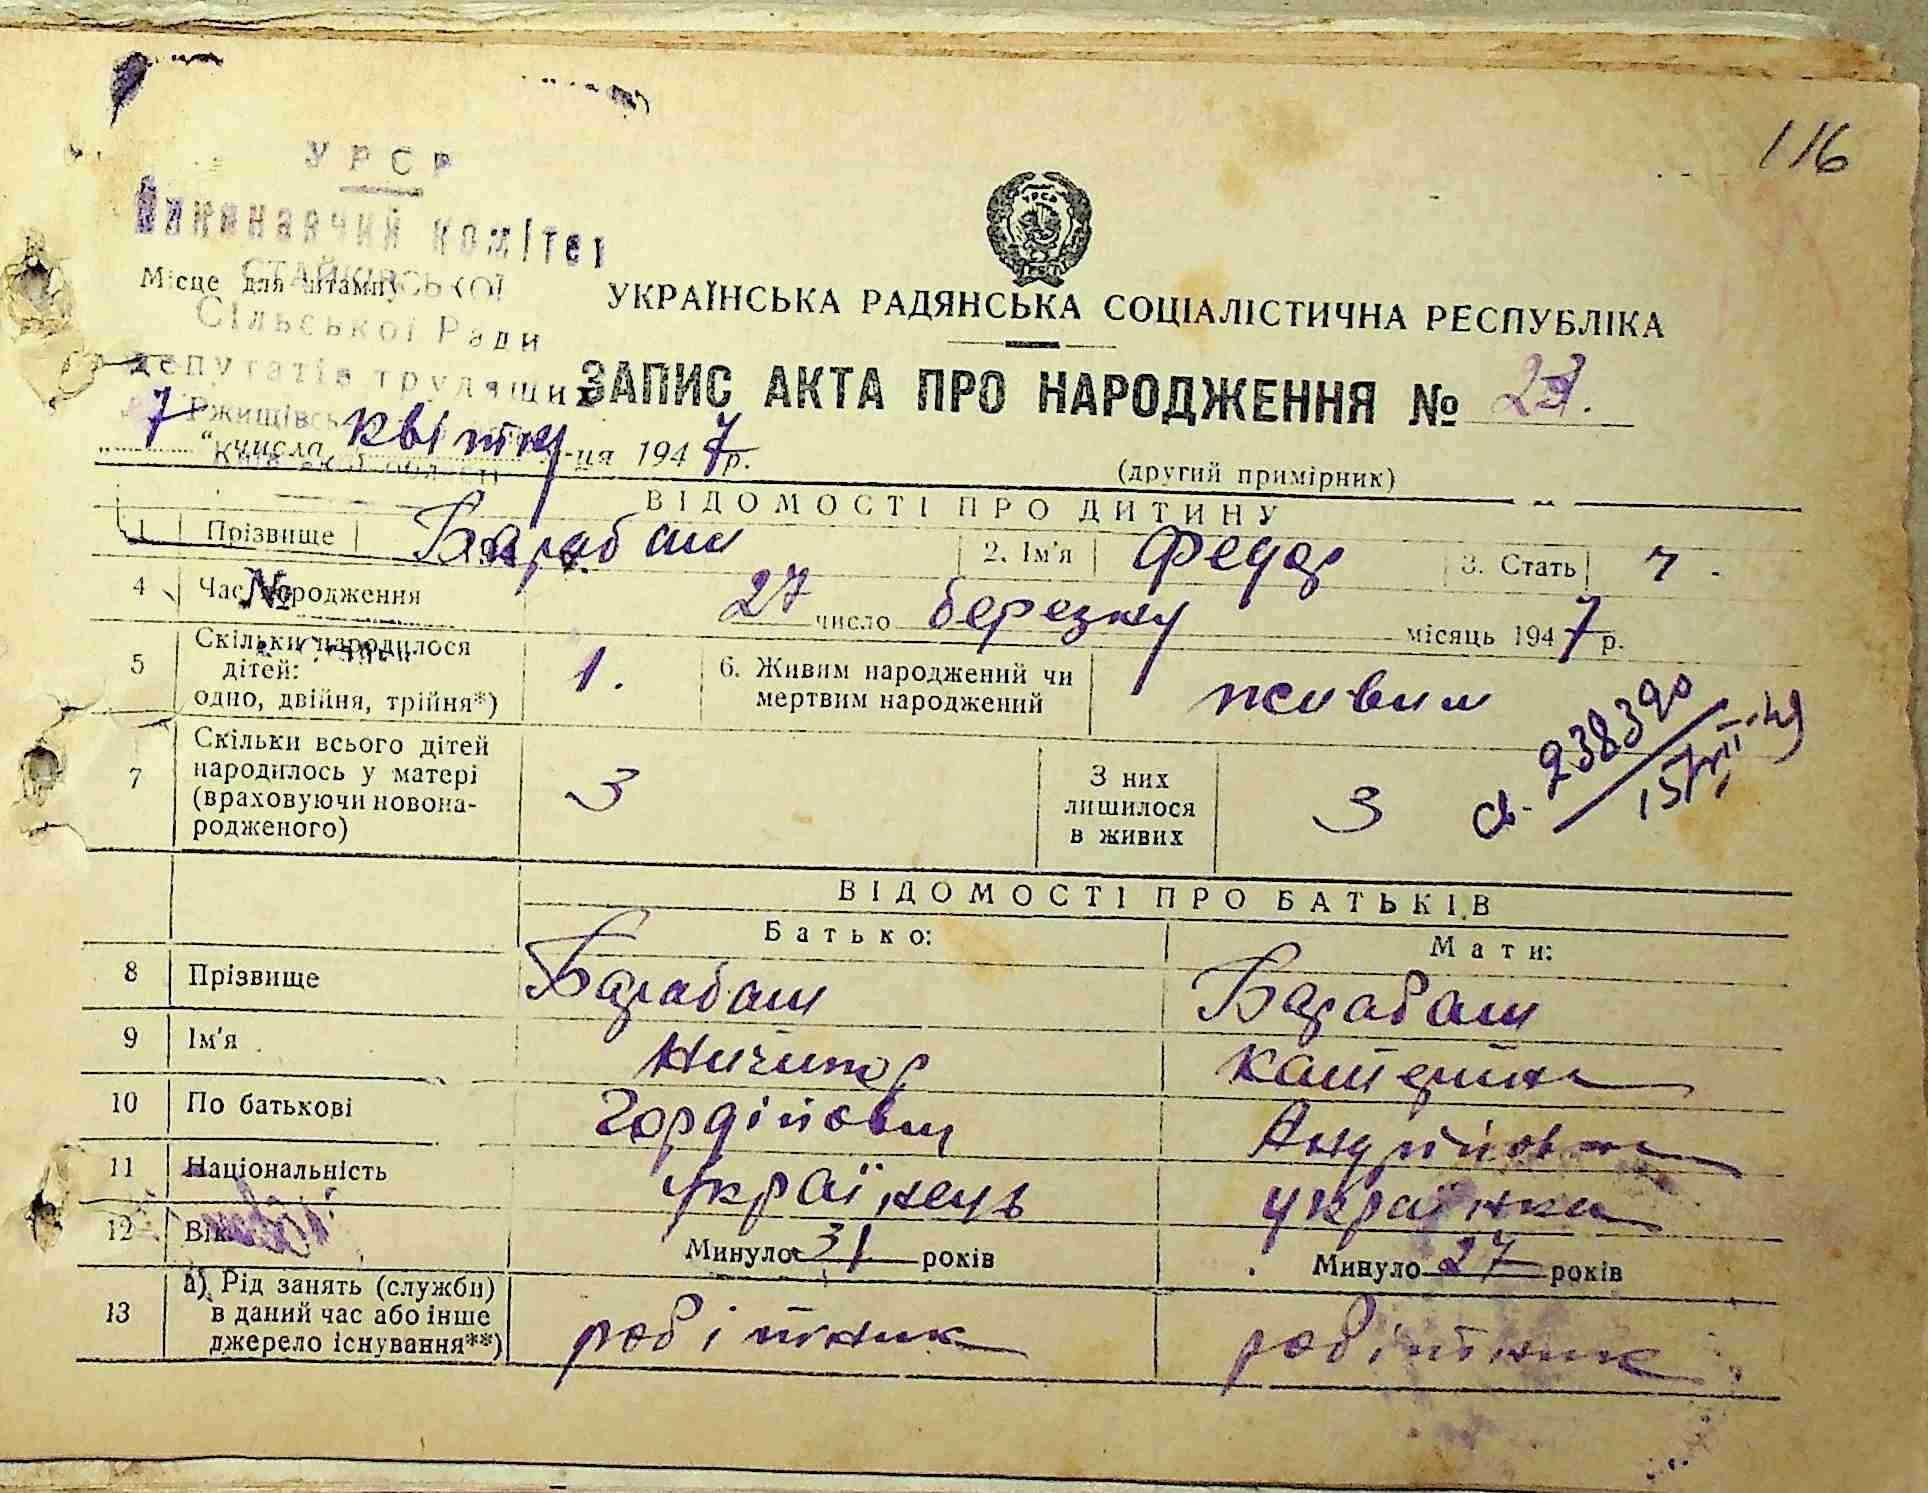 116
УРСР
Виконавчий комітет
СТАЙКІВСЬКОЇ
Місце для штампу
Сільської Ради
депутатів трудящих
Ржищівськ
Київської області
УКРАЇНСЬКА РАДЯНСЬКА СОЦІАЛІСТИЧНА РЕСПУБЛІКА
ЗАПИС АКТА ПРО НАРОДЖЕННЯ №
„7“ числа квітня м-ця 1947р.
(другий примірник)
ВІДОМОСТІ ПРО ДИТИНУ
1 Прізвище Барабаш 2. Ім'я Федор 3. Стать ч.
4 Час народження 27 число березня місяць 1947 р.
№
5 Скільки народилося дітей: одно, двійня, трійня*) 1. 6. Живим народжений чи мертвим народжений живим
7 Скільки всього дітей народилось у матері (враховуючи новонародженого) 3 З них лишилося в живих 3
238390
ВІДОМОСТІ ПРО БАТЬКІВ
Батько: Мати:
8 Прізвище Барабаш Барабаш
9 Ім'я Ничипор Катерина
10 По батькові Гордійович Андрійовна
11 Національність українець українка
12 Вік Минуло 31 років Минуло 27 років
13 а) Рід занять (служби) в даний час або інше джерело існування**) робітник робітник